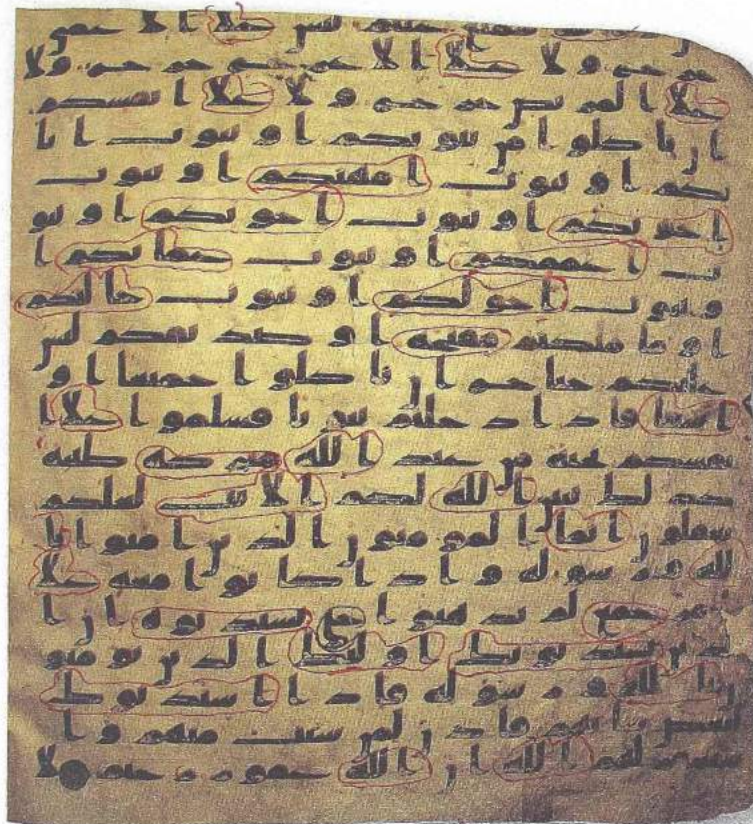 ليس علا الاعمى
حرج ولا علا الاعرج حرج ولا
علا المريض حرج ولا علا انفسكم
ان تاكلوا من بيوتكم او بيوت ابا
ئكم او بيوت امهتكم او بيوت
اخونكم او بيوت اخوتكم او بيو
ت اعممكم او بيوت عماتكم ا
و بيوت اخولكم او بيوت خالتكم
او ما ملكتم مفتحه او صديقكم ليس
عليكم جناح ان تاكلوا جميعا او
اشتتا فاذا دخلتم بيوتا فسلموا علا ا
نفسكم تحية من عند الله مبركة طيبة
كذلك يبين الله لكم الايت لعلكم
تعقلون انما المومنون الذين امنوا با
لله ورسوله واذا كانوا معه علا
امر جمع لم يذهبوا حتى يستذنوه ان ا
لذين يستذنونك اولئك الذين يومنو
ن بالله ورسوله فاذا استذنوك
لبعض شانهم فاذن لمن شئت منهم وا
ستغفر لهم الله ان الله غفور رحيم لا